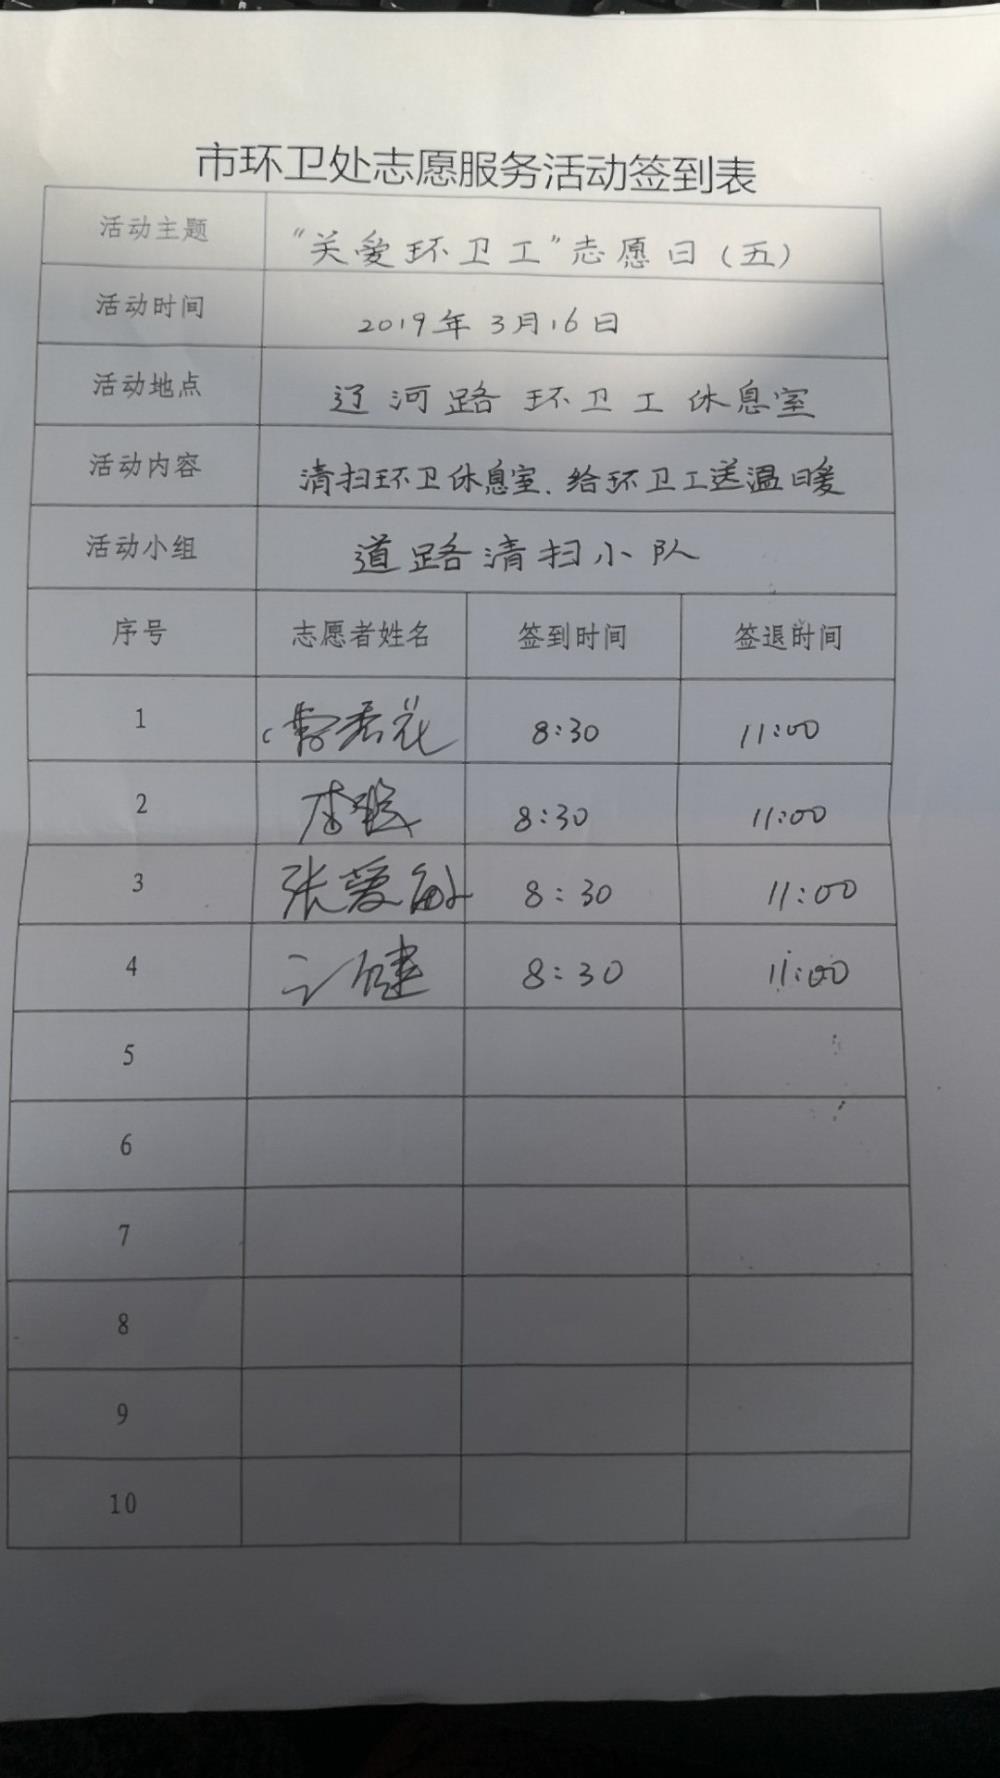 市环卫处志愿服务活动签到表
活动主题 “关爱环卫工”志愿日(五)
活动时间 2019年3月16日
活动地点 辽河路环卫工休息室
活动内容 清扫环卫休息室.给环卫工送温暖
活动小组 道路清扫小队
序号 志愿者姓名 签到时间 签退时间
1 8:30 11:00
2 8:30 11:00
3 张爱敏 8:30 11:00
4 8:30 11:00
5
6
7
8
9
10